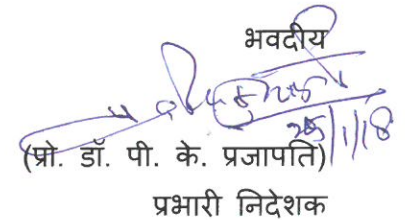 भवदीय
25/1/18
(प्रो. डॉ. पी. के. प्रजापति)
प्रभारी निदेशक